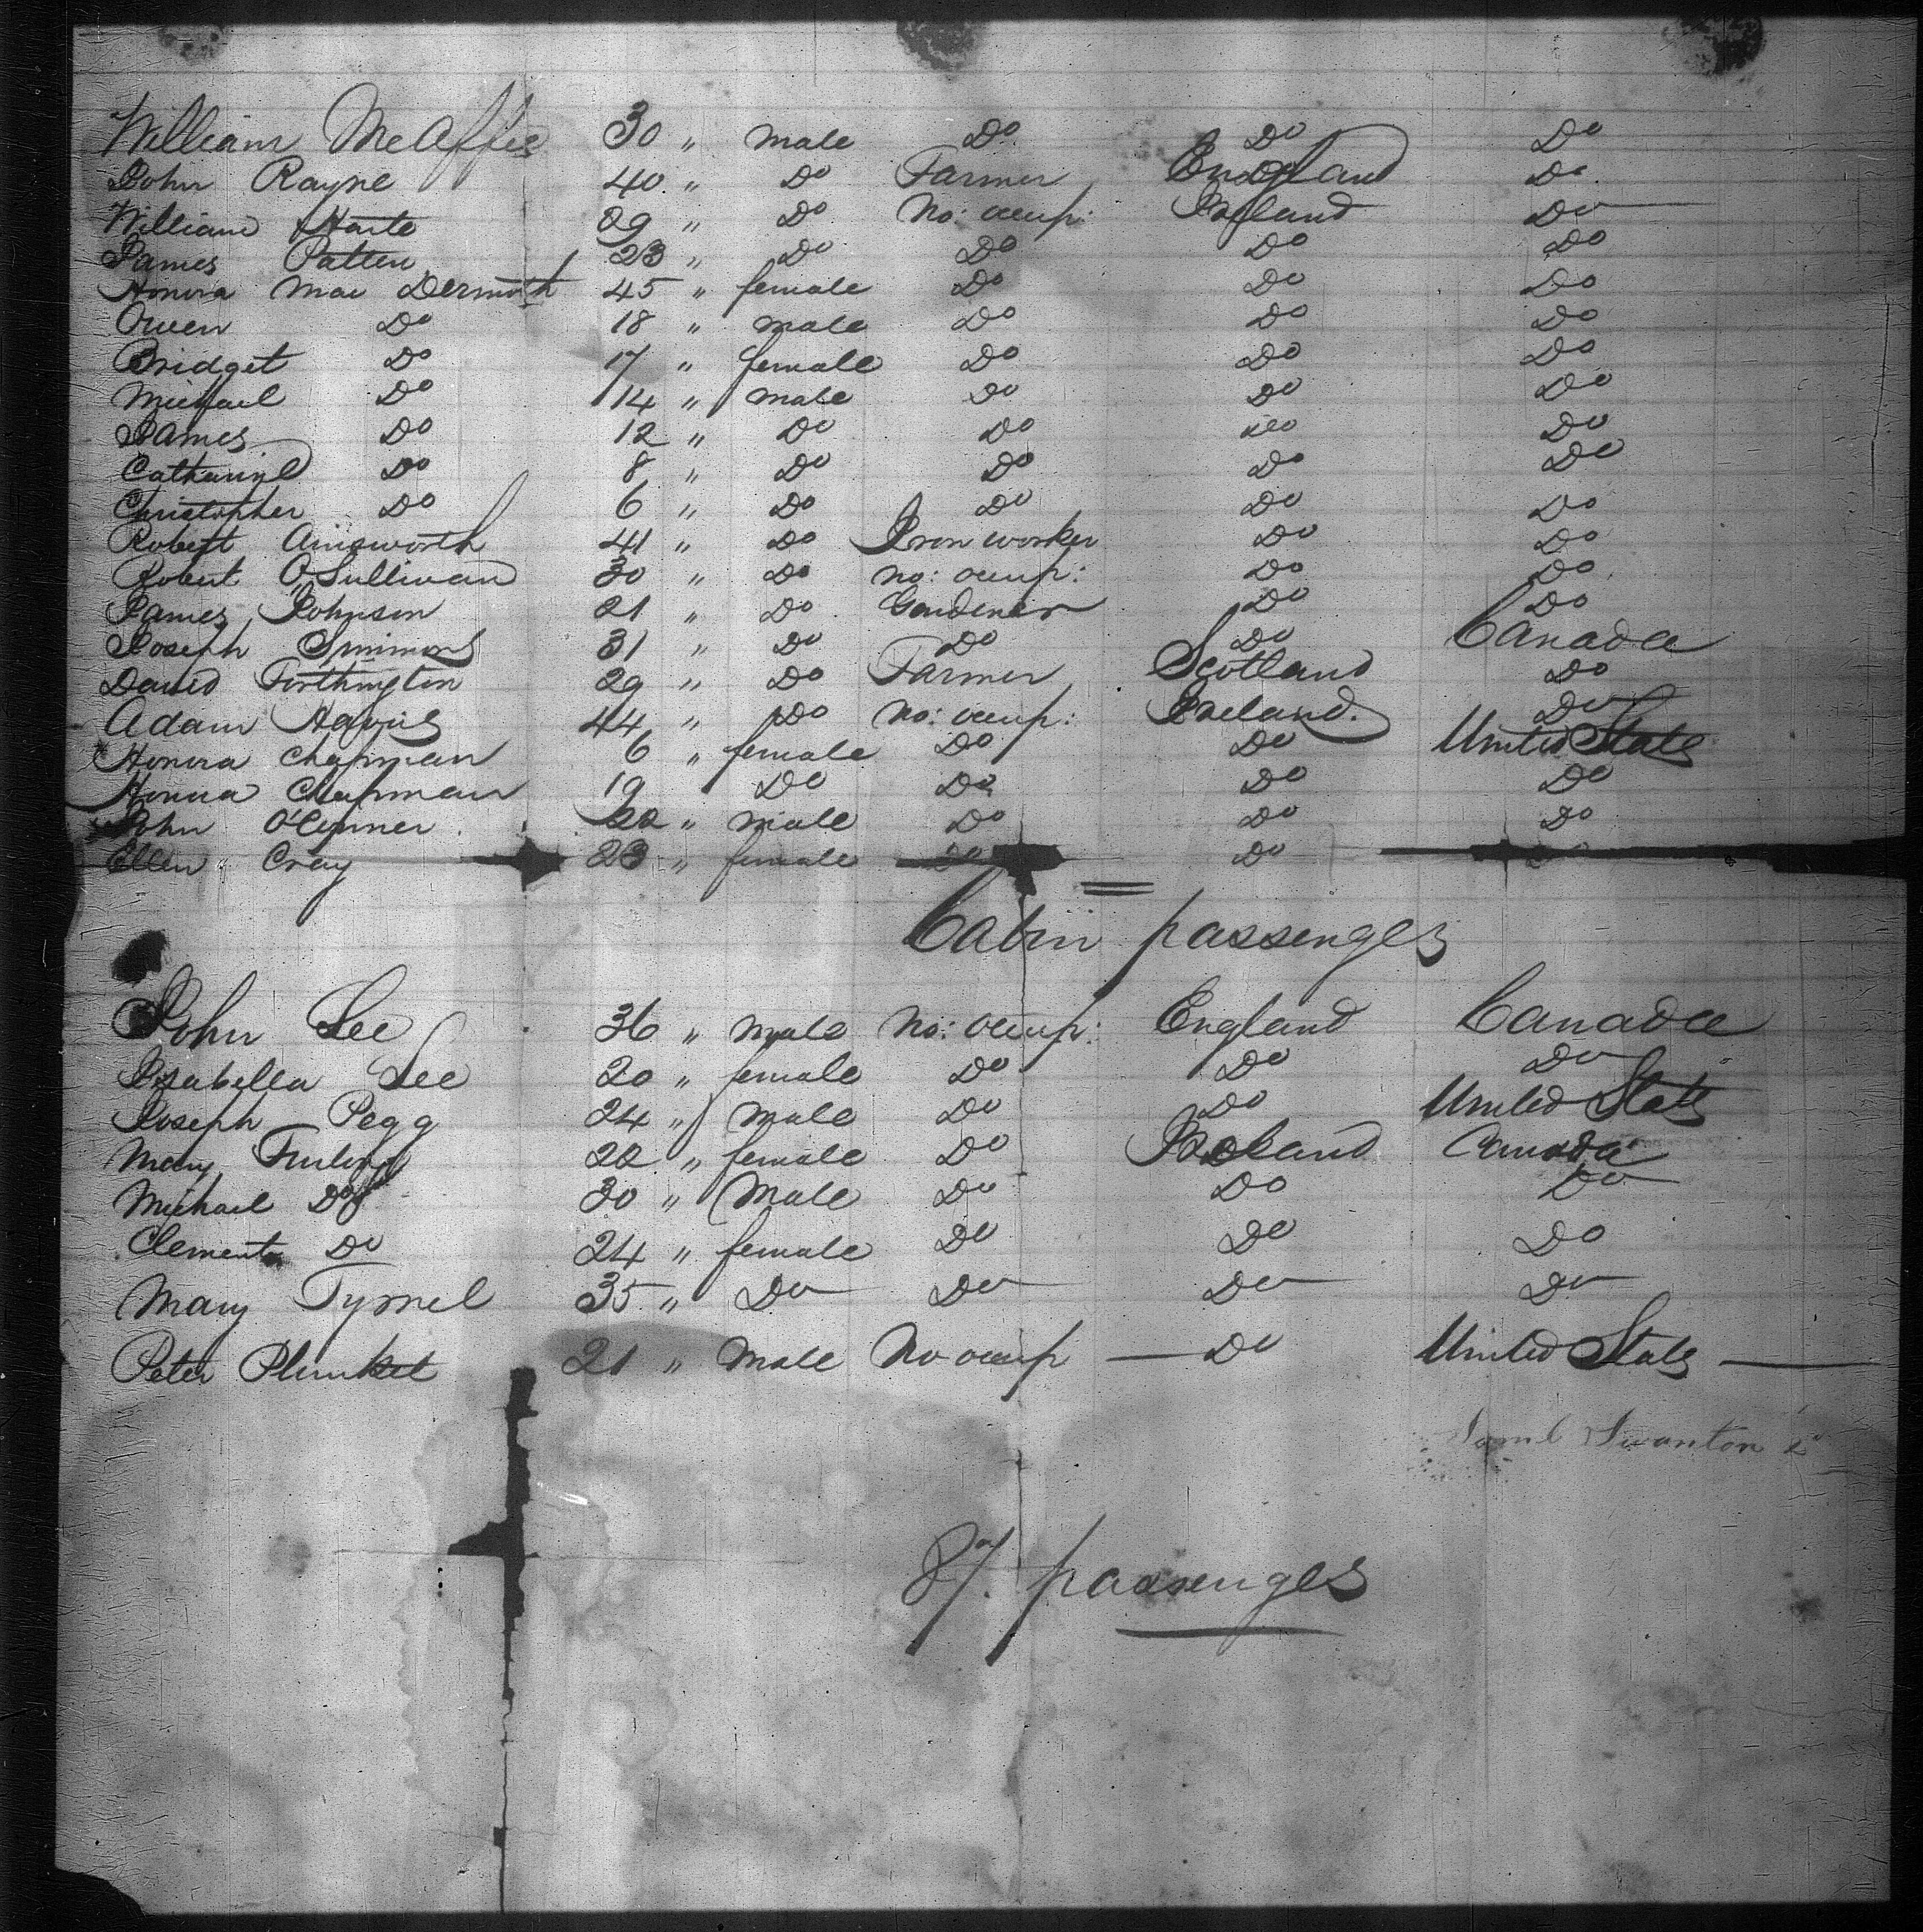 William McAffie 30 " male Do Do Do
John Rayne 40 " Do Farmer England Do
William Harte 29 " Do No: occup: Ireland Do
James Patten 23 " Do Do Do Do
Honora Mac Dermoth 45 " female Do Do Do
Owen Do 18 " male Do Do Do
Bridget Do 17 " female Do Do Do
Michael Do 14 " male Do Do Do
James Do 12 " Do Do Do Do
Catharine Do 8 " Do Do Do Do
Christopher Do 6 " Do Do Do Do
Robert Ainsworth 41 " Do Iron worker Do Do
Robert O'Sullivan 30 " Do no: occup: Do Do
James Johnson 21 " Do Gardener Do Do
Joseph Simmons 31 " Do Do Do Canada
David Forthington 29 " Do Farmer Scotland Do
Adam 44 " Do No: occup: Ireland. Do
Honora Chapman 6 " female Do Do United States
Honora Chapman 19 " Do Do Do Do
John O'Connner 22 " male Do Do Do
Ellen Cray 23 " female Do Do Do
Cabin passenges
John Lee 36 " male No: occup: England Canada
Isabella Lee 20 " female Do Do Do
Joseph Pegg 24 " male Do Do United States
Mary Furlong 22 " female Do Ireland Canada
Michael Do 30 " Male Do Do Do
Clement Do 24 " female Do Do Do
Mary Tyrrel 35 " Do Do Do Do
Peter Plunket 21 " Male No occup — Do United States —
Saml Swanton
87. passenges